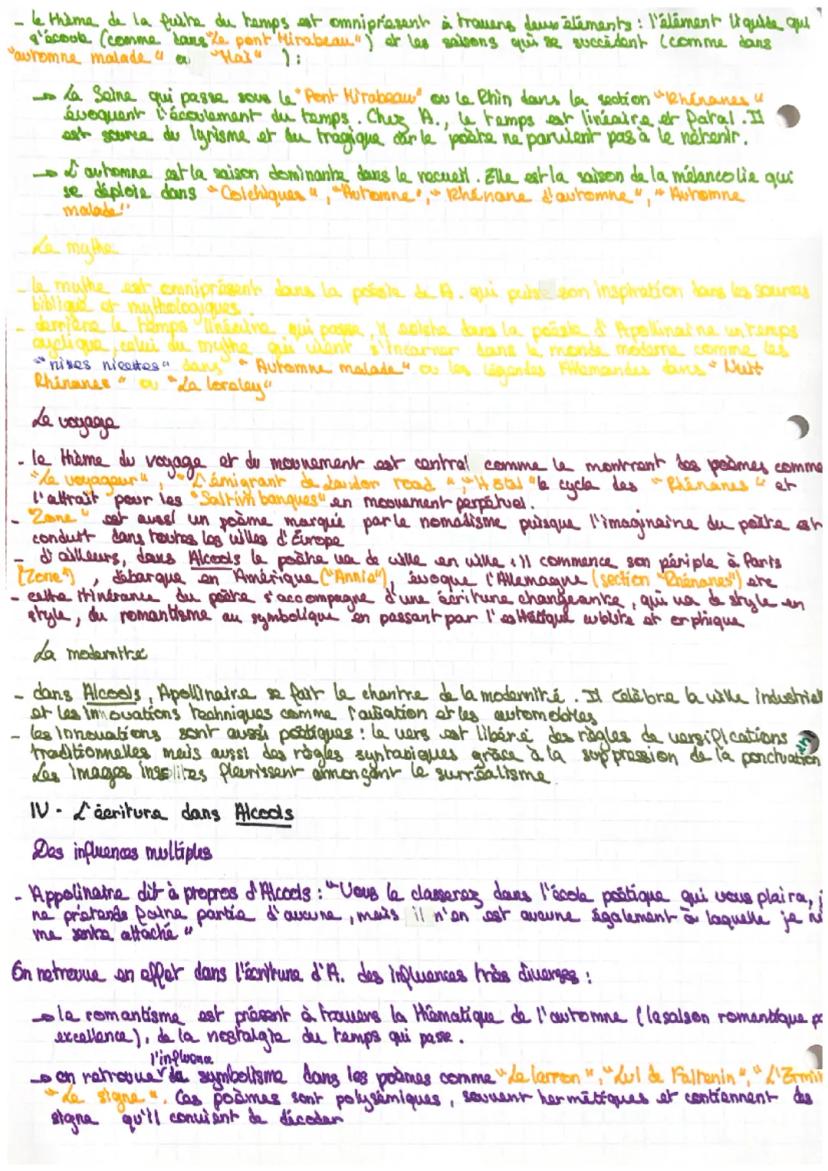 - le thème de la fuite du temps est omniprésent à travers deux éléments : l'élément liquide qui
s'écoule (comme dans "Le pont Mirabeau") et les saisons qui se succèdent (comme dans
"automne malade" ou "Mai") :
→ La Seine qui passe sous le "Pont Mirabeau" ou le Rhin dans la section "Rhénanes"
évoquent l'écoulement du temps. Chez A., le temps est linéaire et fatal. Il
est source du lyrisme et du tragique car le poète ne parvient pas à le retenir.
→ L'automne est la saison dominante dans le recueil. Elle est la saison de la mélancolie qui
se déploie dans "Colchiques", "Automne", "Rhénane d'automne", "Automne
malade"
Le mythe
- le mythe est omniprésent dans la poésie de A. qui puise son inspiration dans les sources
biblique et mythologiques.
- derrière le temps linéaire qui passe, il existe dans la poésie d'Apollinaire un temps
cyclique, celui du mythe qui vient s'incarner dans le monde moderne comme les
"nixes nicettes" dans "Automne malade" ou les légendes Allemandes dans "Nuit
Rhénanes" ou "La loreley"
Le voyage
- le thème du voyage et du mouvement est central comme le montrent les poèmes comme
"Le voyageur", "L'émigrant de Landor road", "Hôtel" le cycle des "Rhénanes" et
l'attrait pour les "Saltimbanques" en mouvement perpétuel.
- "Zone" est aussi un poème marqué par le nomadisme puisque l'imaginaire du poète est
conduit dans toutes les villes d'Europe
- d'ailleurs, dans Alcools le poète va de ville en ville : il commence son périple à Paris
("Zone"), débarque en Amérique ("Annie"), évoque l'Allemagne (section "Rhénanes") etc
- cette itinérance du poète s'accompagne d'une écriture changeante, qui va de style en
style, du romantisme au symbolique en passant par l'esthétique cubiste et orphique
La modernité
- dans Alcools, Apollinaire se fait le chantre de la modernité. Il célèbre la ville industriel
et les innovations techniques comme l'aviation et les automobiles
- les innovations sont aussi poétiques : le vers est libéré des règles de versifications
traditionnelles mais aussi des règles syntaxiques grâce à la suppression de la ponctuation
Les images insolites fleurissent annonçant le surréalisme.
IV - L'écriture dans Alcools
Des influences multiples
- Appolinaire dit à propos d'Alcools : "Vous le classerez dans l'école poétique qui vous plaira, j
ne prétends faire partie d'aucune, mais il n'en est aucune également à laquelle je n
me sente attaché"
On retrouve en effet dans l'écriture d'A. des influences très diverses :
→ le romantisme est présent à travers la thématique de l'automne (la saison romantique p
excellence), de la nostalgie du temps qui passe.
→ on retrouve l'influence de symbolisme dans les poèmes comme "Le larron", "Lul de Faltenin", "L'Ermi
"Le signe". Ces poèmes sont polysémiques, souvent hermétiques et contiennent des
signe qu'il convient de décoder